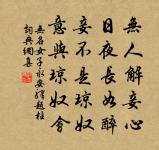 無人解妾心
日夜長如醉
妾不是瓊奴
意與瓊奴會
無名女子永安驛題柱
詞典網集